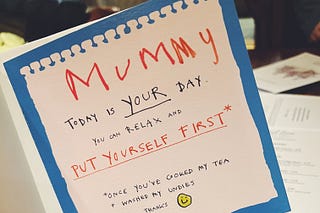 MUMMY
TODAY IS YOUR DAY.
YOU CAN RELAX AND
PUT YOURSELF FIRST*
*ONCE YOU'VE COOKED MY TEA
+ WASHED MY UNDIES
THANKS